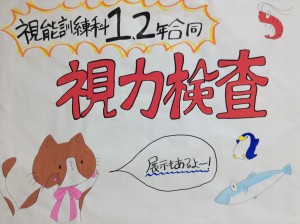 視能訓練科1,2年合同
視力検査
展示もあるよー!